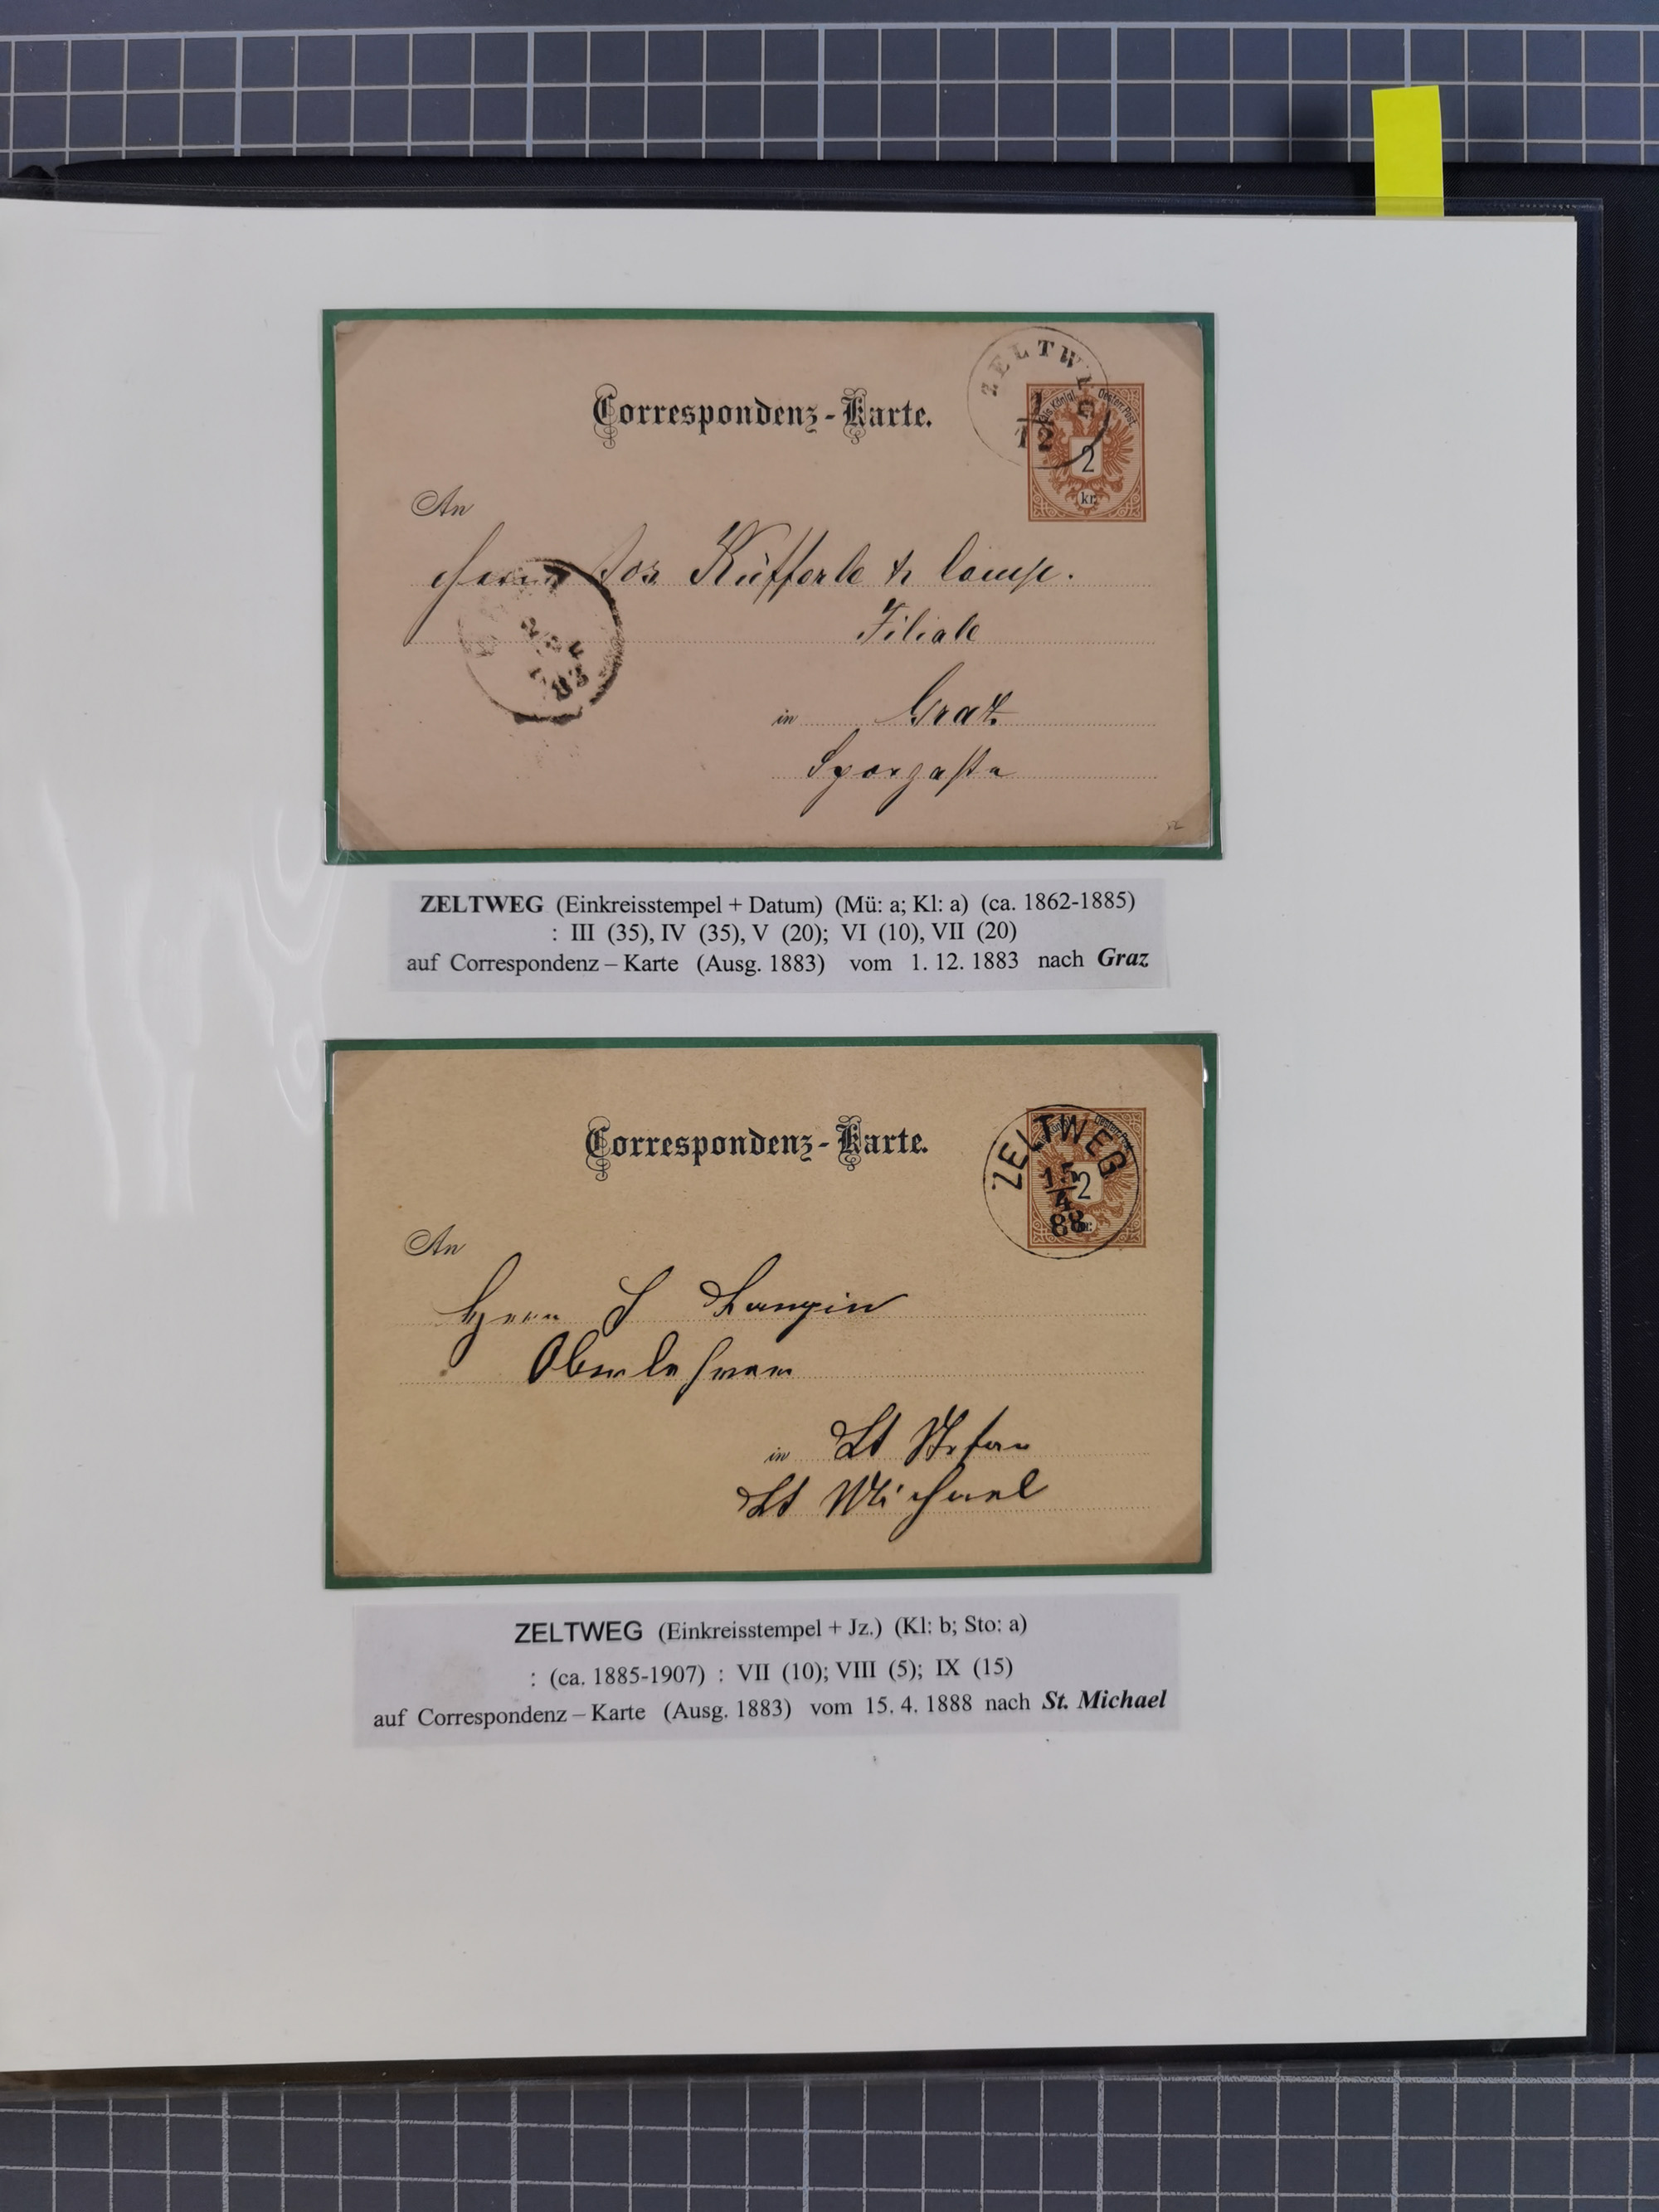 ZELTWEG
1
12
Correspondenz-Karte.
Kais. Königl. Oesterr. Post.
2
kr.
An
Herrn Jos Küfferle & Comp.
Filiale
in Graz
Sporgasse
83
ZELTWEG (Einkreisstempel + Datum) (Mü: a; Kl: a) (ca. 1862-1885)
: III (35), IV (35), V (20); VI (10), VII (20)
auf Correspondenz – Karte (Ausg. 1883) vom 1. 12. 1883 nach Graz
Correspondenz-Karte.
ZELTWEG
15
4
88
2
An
Herrn J
Oberlehrer
in St Stefan
St Michael
ZELTWEG (Einkreisstempel + Jz.) (Kl: b; Sto: a)
: (ca. 1885-1907) : VII (10); VIII (5); IX (15)
auf Correspondenz – Karte (Ausg. 1883) vom 15. 4. 1888 nach St. Michael